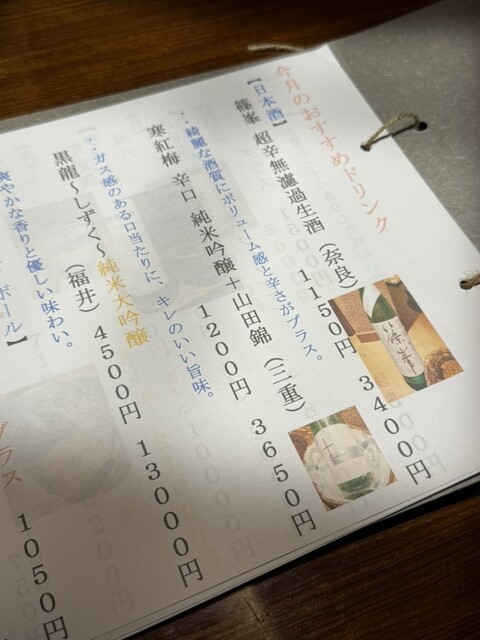 今月のおすすめドリンク
【日本酒】
篠峯 超辛無濾過生酒(奈良) 1150円 3400円
…綺麗な酒質にボリューム感と辛さがプラス。
寒紅梅 辛口 純米吟醸+山田錦(三重) 1200円 3650円
…ガス感のある口当たりに、キレのいい旨味。
黒龍~しずく~純米大吟醸(福井) 4500円 13000円
爽やかな香りと優しい味わい。
ボール】
グラス 1050円
篠峯